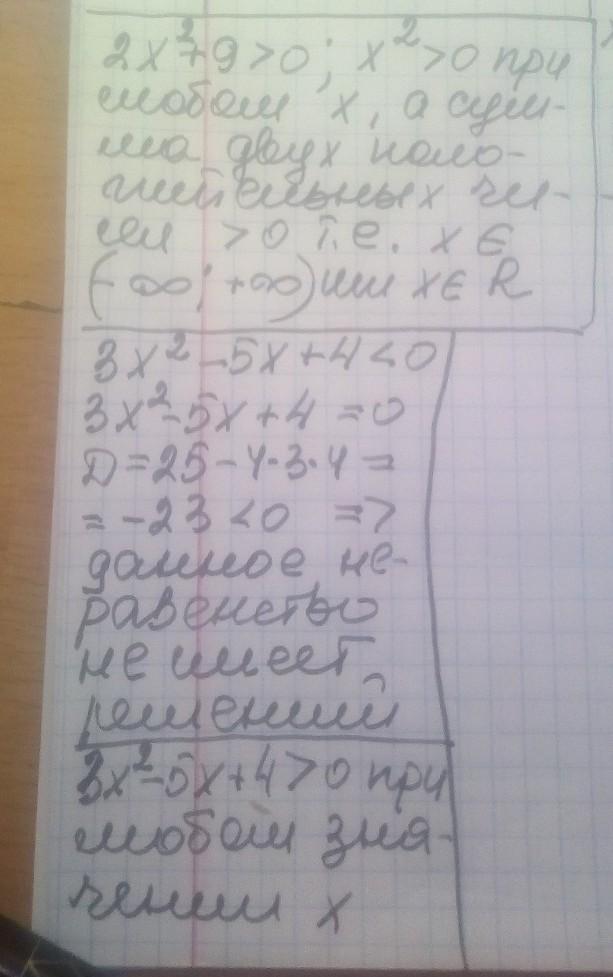 2x²+9>0; x²>0 при
любом x, а сум-
ма двух поло-
жительных чи-
сел >0 т.е. x∈
(-∞; +∞) или x∈R
3x²-5x+4<0
3x²-5x+4=0
D=25-4·3·4=
=-23<0 =>
данное не-
равенство
не имеет
решений
3x²-5x+4>0 при
любом зна-
чении x